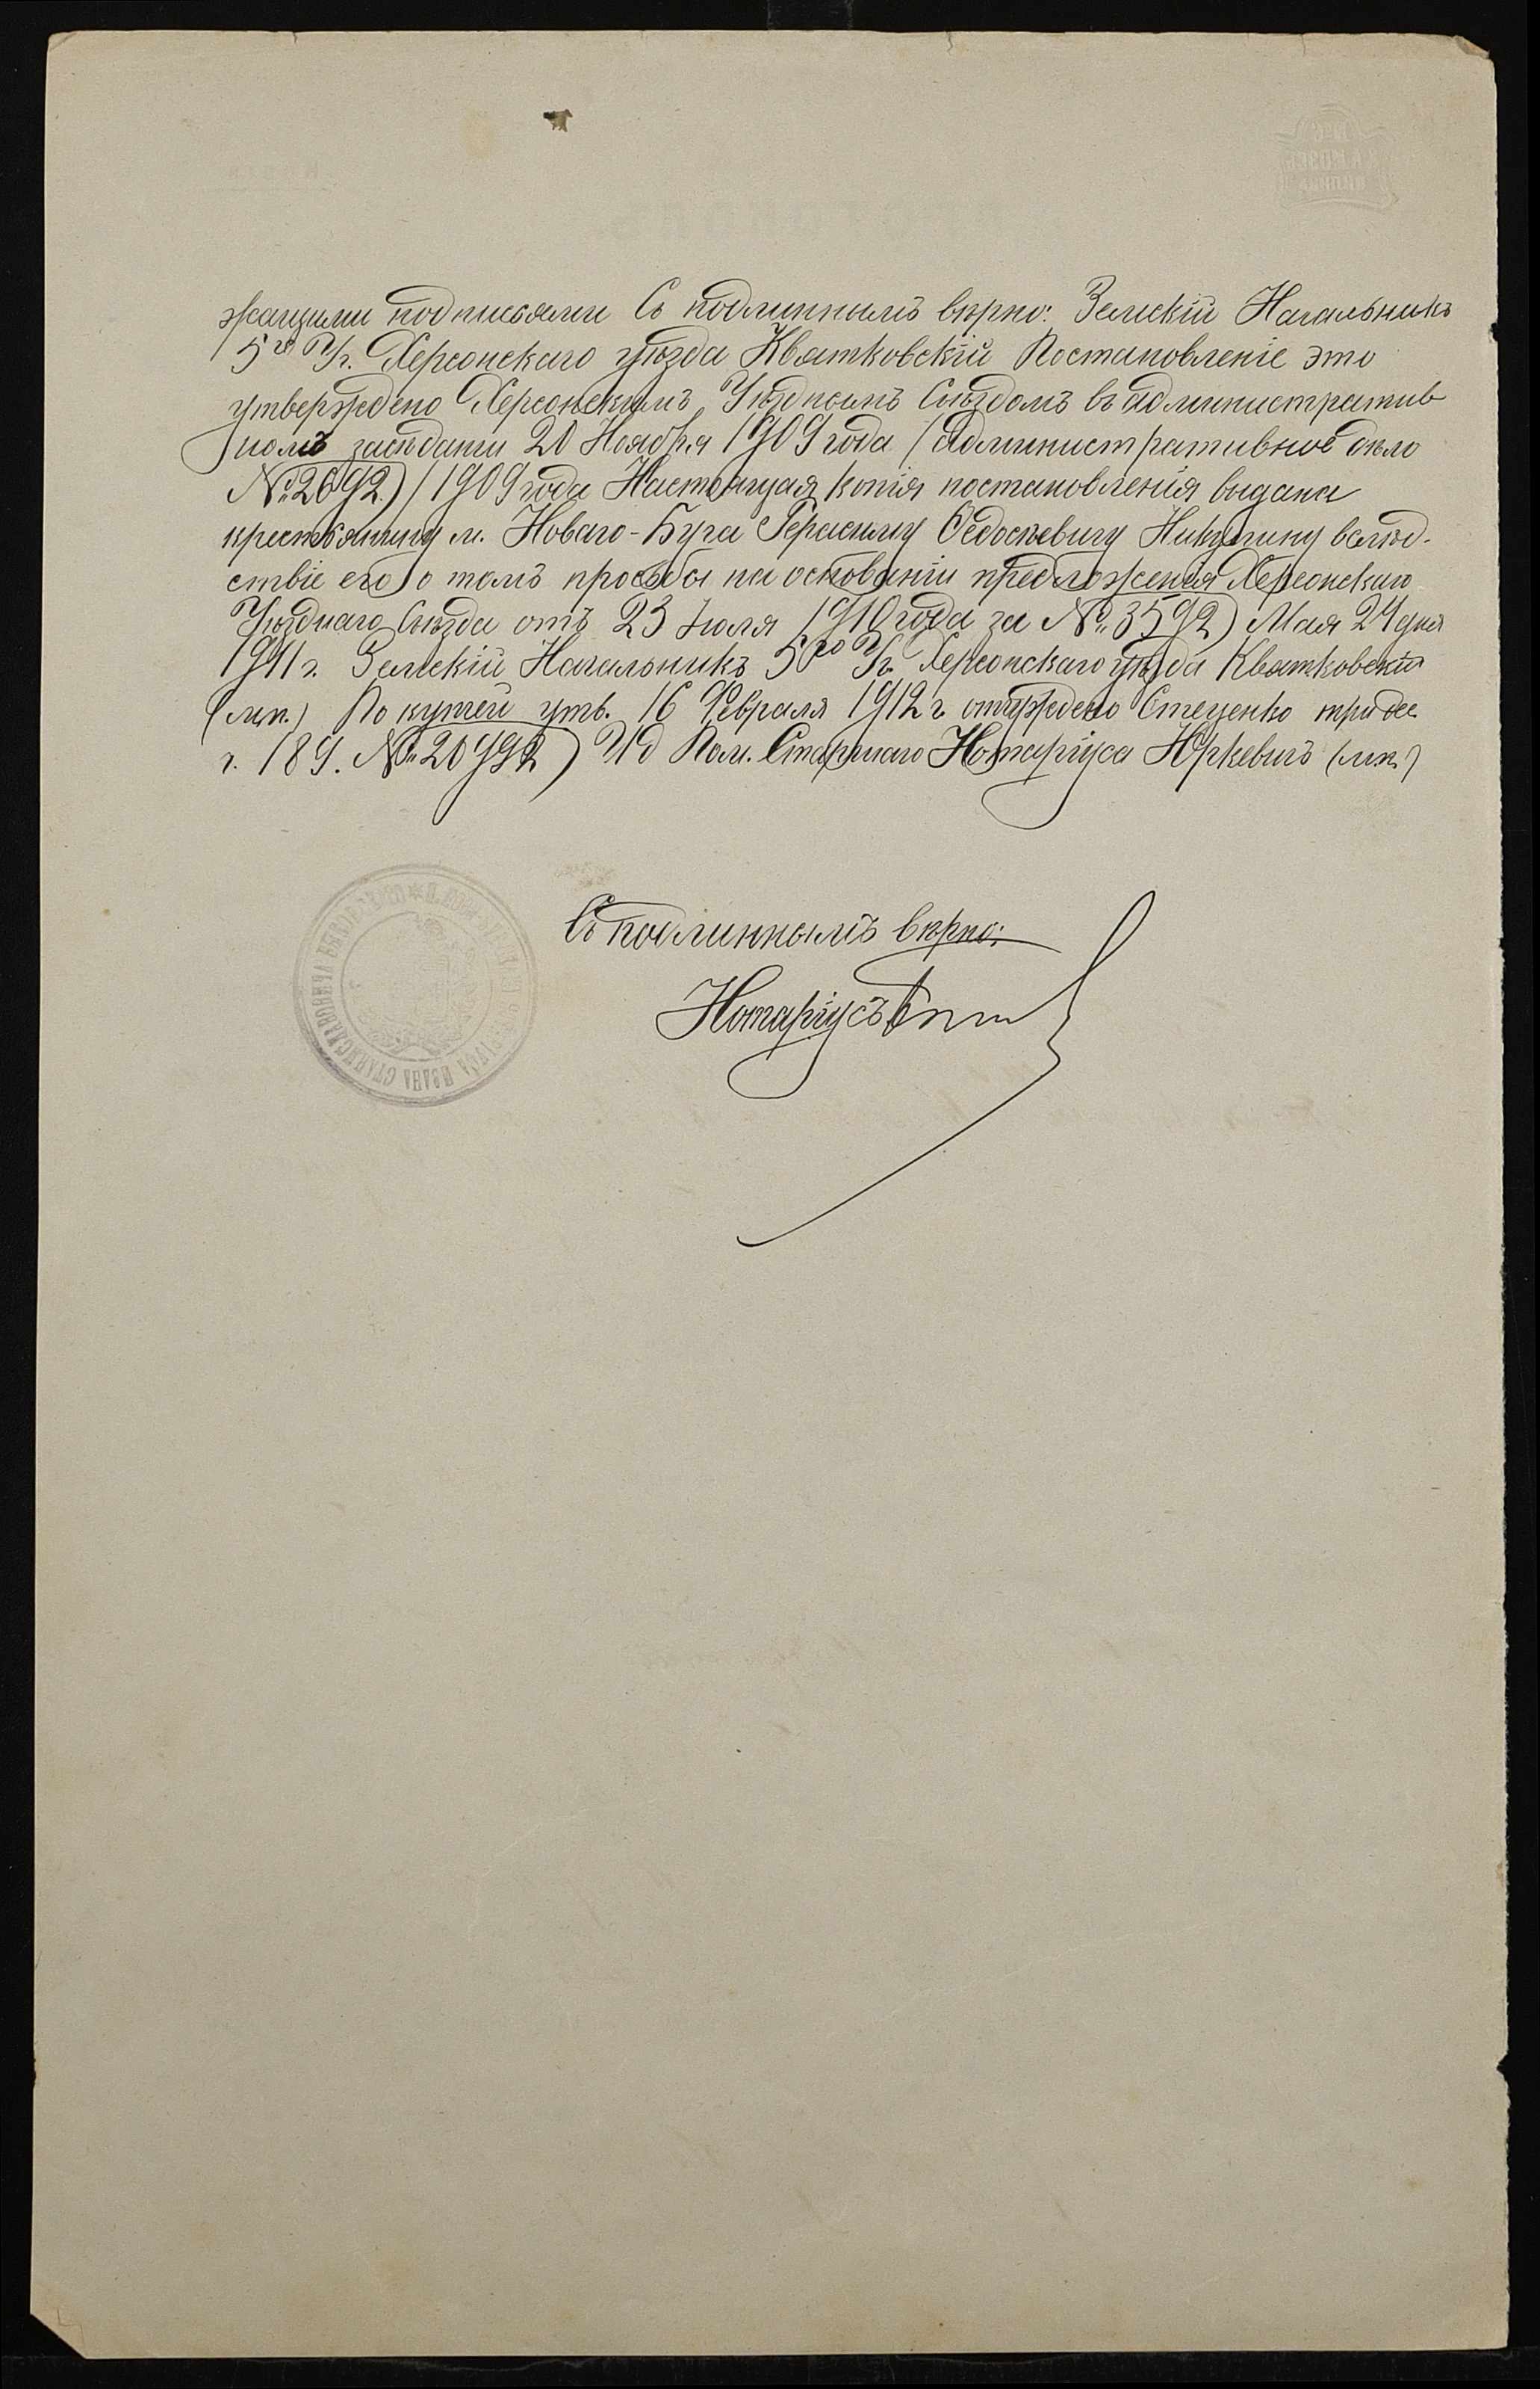 жащими подписями Съ подлиннымъ вѣрно: Земскій Начальникъ
5го Уч. Херсонскаго уѣзда Квятковскій Постановленіе это
утверждено Херсонскимъ Уѣзднымъ Съѣздомъ въ административ
номъ засѣдании 20 Ноября 1909 года (Административное дѣло
№ 2692) 1909 года Настоящая копія постановленія выдана
крестьянину м. Новаго-Буга Герасиму Ѳедосѣевичу Никулину вслѣд-
ствіе его о томъ просьбы на основаніи предложенія Херсонскаго
Уѣзднаго Съѣзда отъ 23 Іюля 1910 года за № 3592) Мая 24 дня
1911 г. Земскій Начальникъ 5го Уч. Херсонскаго уѣзда Квятковскій
(м.п.) По купчей утв. 16 Февраля 1912 г отчуждено Стеценко три дес
ч. 189. № 20992) И д Пом. Старшаго Нотаріуса Юркевичъ (м.п.)
Съ подлиннымъ вѣрно:
Нотаріусъ